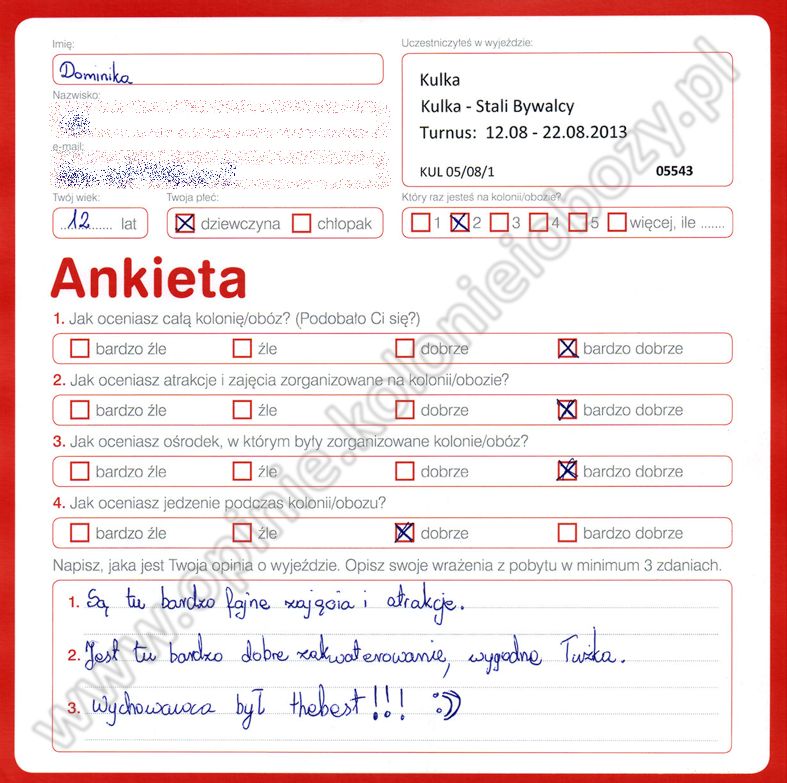 Imię:
Dominika
Nazwisko:
e-mail:
Twój wiek:
12 lat
Twoja płeć:
dziewczyna chłopak
Uczestniczyłeś w wyjeździe:
Kulka
Kulka - Stali Bywalcy
Turnus: 12.08 - 22.08.2013
KUL 05/08/1 05543
Który raz jesteś na kolonii/obozie?
1 2 3 4 5 więcej, ile .......
Ankieta
1. Jak oceniasz całą kolonię/obóz? (Podobało Ci się?)
bardzo źle źle dobrze bardzo dobrze
2. Jak oceniasz atrakcje i zajęcia zorganizowane na kolonii/obozie?
bardzo źle źle dobrze bardzo dobrze
3. Jak oceniasz ośrodek, w którym były zorganizowane kolonie/obóz?
bardzo źle źle dobrze bardzo dobrze
4. Jak oceniasz jedzenie podczas kolonii/obozu?
bardzo źle źle dobrze bardzo dobrze
Napisz, jaka jest Twoja opinia o wyjeździe. Opisz swoje wrażenia z pobytu w minimum 3 zdaniach.
1. Są tu bardzo fajne zajęcia i atrakcje.
2. Jest tu bardzo dobre zakwaterowanie, wygodne Tużka.
3. Wychowawca był thebest!!! :))
www.opinie.kolonieiobozy.pl